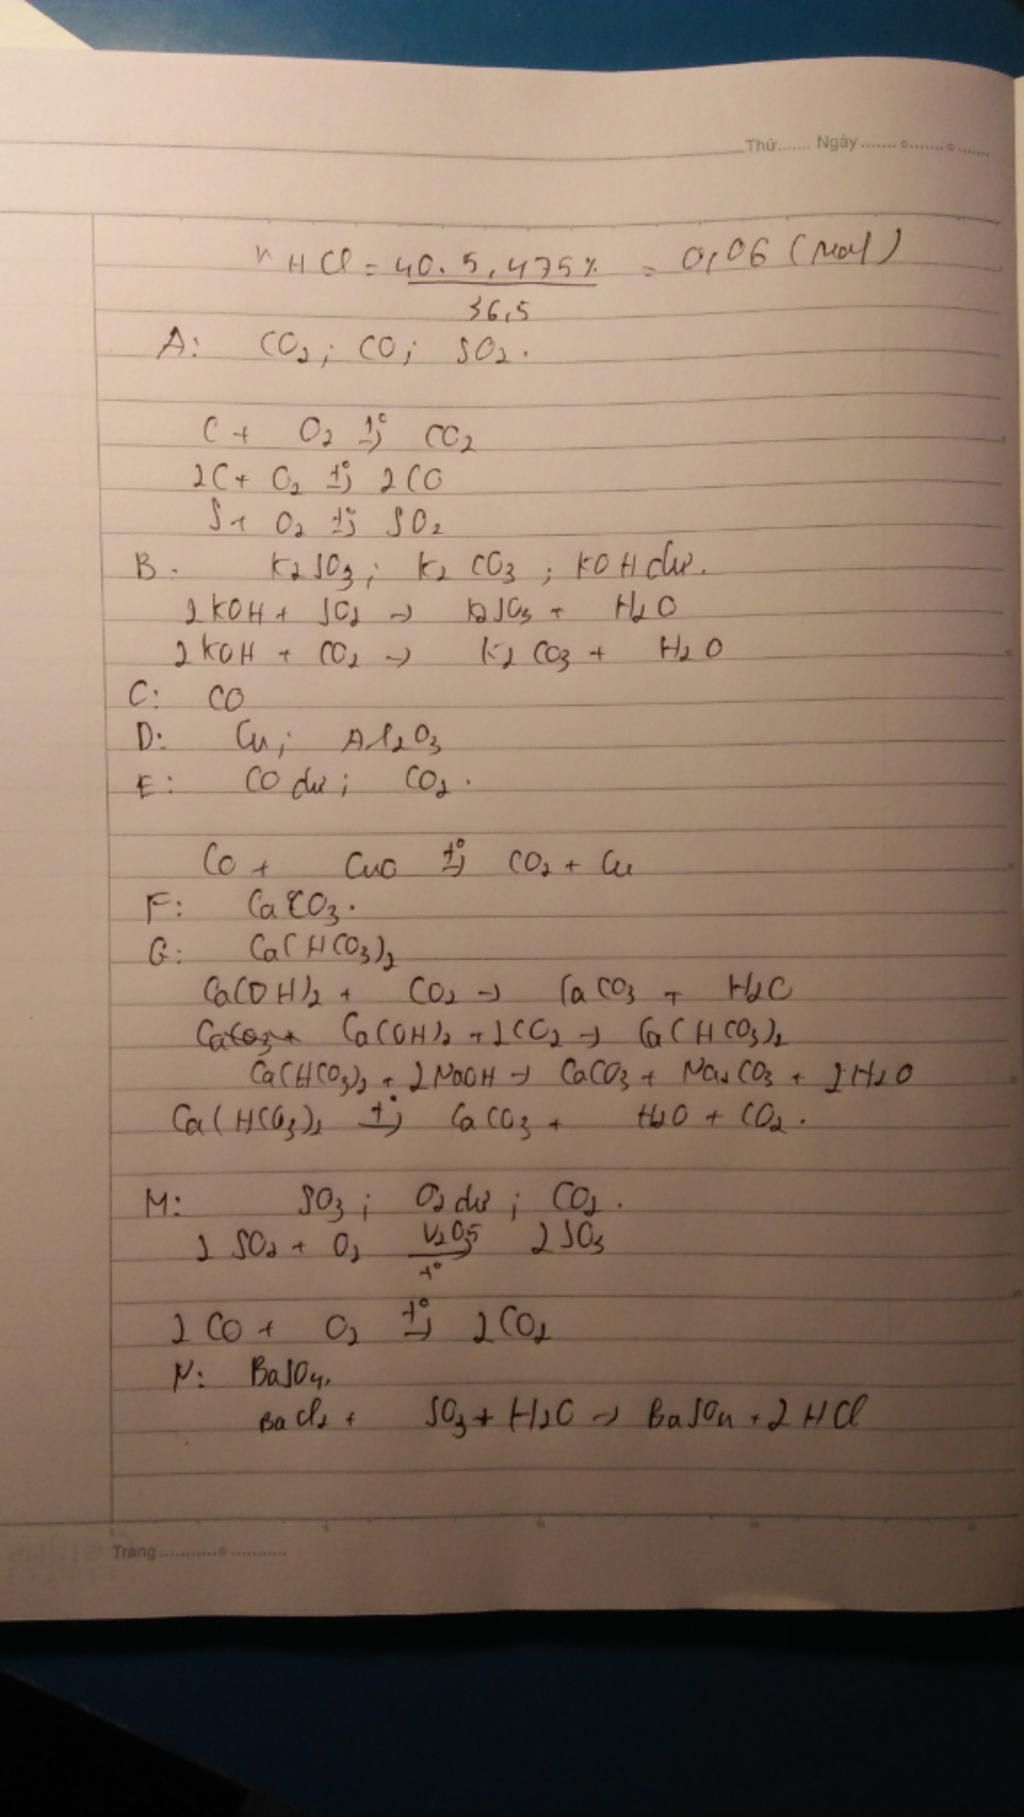 Thứ....... Ngày ....... o ....... o ......
nHCl = 40.5,475% = 0,06 (mol)
36,5
A: CO2; CO; SO2.
C + O2 t°→ CO2
2C + O2 t°→ 2CO
S + O2 t°→ SO2
B. K2SO3; K2CO3; KOH dư.
2KOH + SO2 → K2SO3 + H2O
2KOH + CO2 → K2CO3 + H2O
C: CO
D: Cu; Al2O3
E: CO dư; CO2.
CO + CuO t°→ CO2 + Cu
F: CaCO3.
G: Ca(HCO3)2
Ca(OH)2 + CO2 → CaCO3 + H2O
Ca(OH)2 + 2CO2 → Ca(HCO3)2
Ca(HCO3)2 + 2NaOH → CaCO3 + Na2CO3 + 2H2O
Ca(HCO3)2 t°→ CaCO3 + H2O + CO2.
M: SO3; O2 dư; CO2.
2SO2 + O2 V2O5→ t° 2SO3
2CO + O2 t°→ 2CO2
N: BaSO4.
BaCl2 + SO3 + H2O → BaSO4 + 2HCl
Trang ........... o ...........